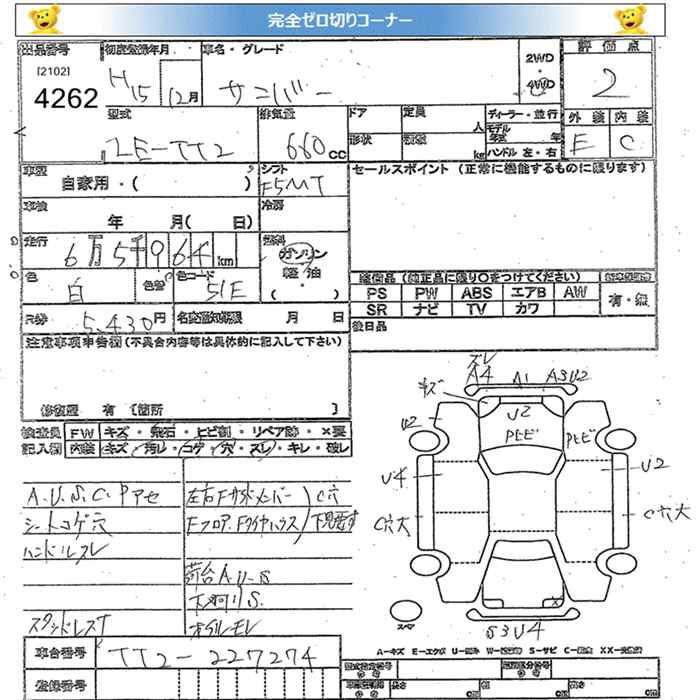 完全ゼロ切りコーナー
出品番号 初度登録年月 車名・グレード 2WD・4WD 評価点
[2102]
4262 H15 12月 サンバー 2
型式 排気量 ドア 定員 人 ディーラー・並行 外装 内装
LE-TT2 660cc 形状 積量 kg モデル年式 年 E C
ハンドル 左・右
車歴 シフト セールスポイント(正常に機能するものに限ります)
自家用・( ) F5MT
車検 冷房
年 月( 日)
走行 燃料
6万5千964km ガソリン
軽油
・( )
色 色替 色コード 装備品(純正品に限り○をつけてください)
白 51E PS PW ABS エアB AW 有・無
SR ナビ TV カワ
R券 5,430円 名変通知期限 月 日 後日品
注意事項申告欄(不具合内容等は具体的に記入して下さい)
修復歴 有 [箇所 ]
検査員 FW キズ・飛石・ヒビ割・リペア跡・×要
記入欄 内装 キズ・汚レ・コゲ・穴・スレ・キレ・破レ
A.U.S.C.Pアセ
シートコゲ穴
ハンドルスレ
スタッドレスT
左右Fサイドメンバー C穴
Fフロア、Fタイヤハウス 下見要す
荷台A.U-S
下廻りS.
オイルモレ
ズレ
A4 A1 A3U2
キズ
U2 U2
Pヒビ Pヒビ
U4 U2
C穴大 C穴大
X
スペア
S3U4
A-キズ E-エクボ U-凹み W-波 S-サビ C-腐食 XX-交換済
車台番号 TT2-227274
登録番号
型式指定番号 類別区分番号
長さ cm 幅 cm 高さ cm